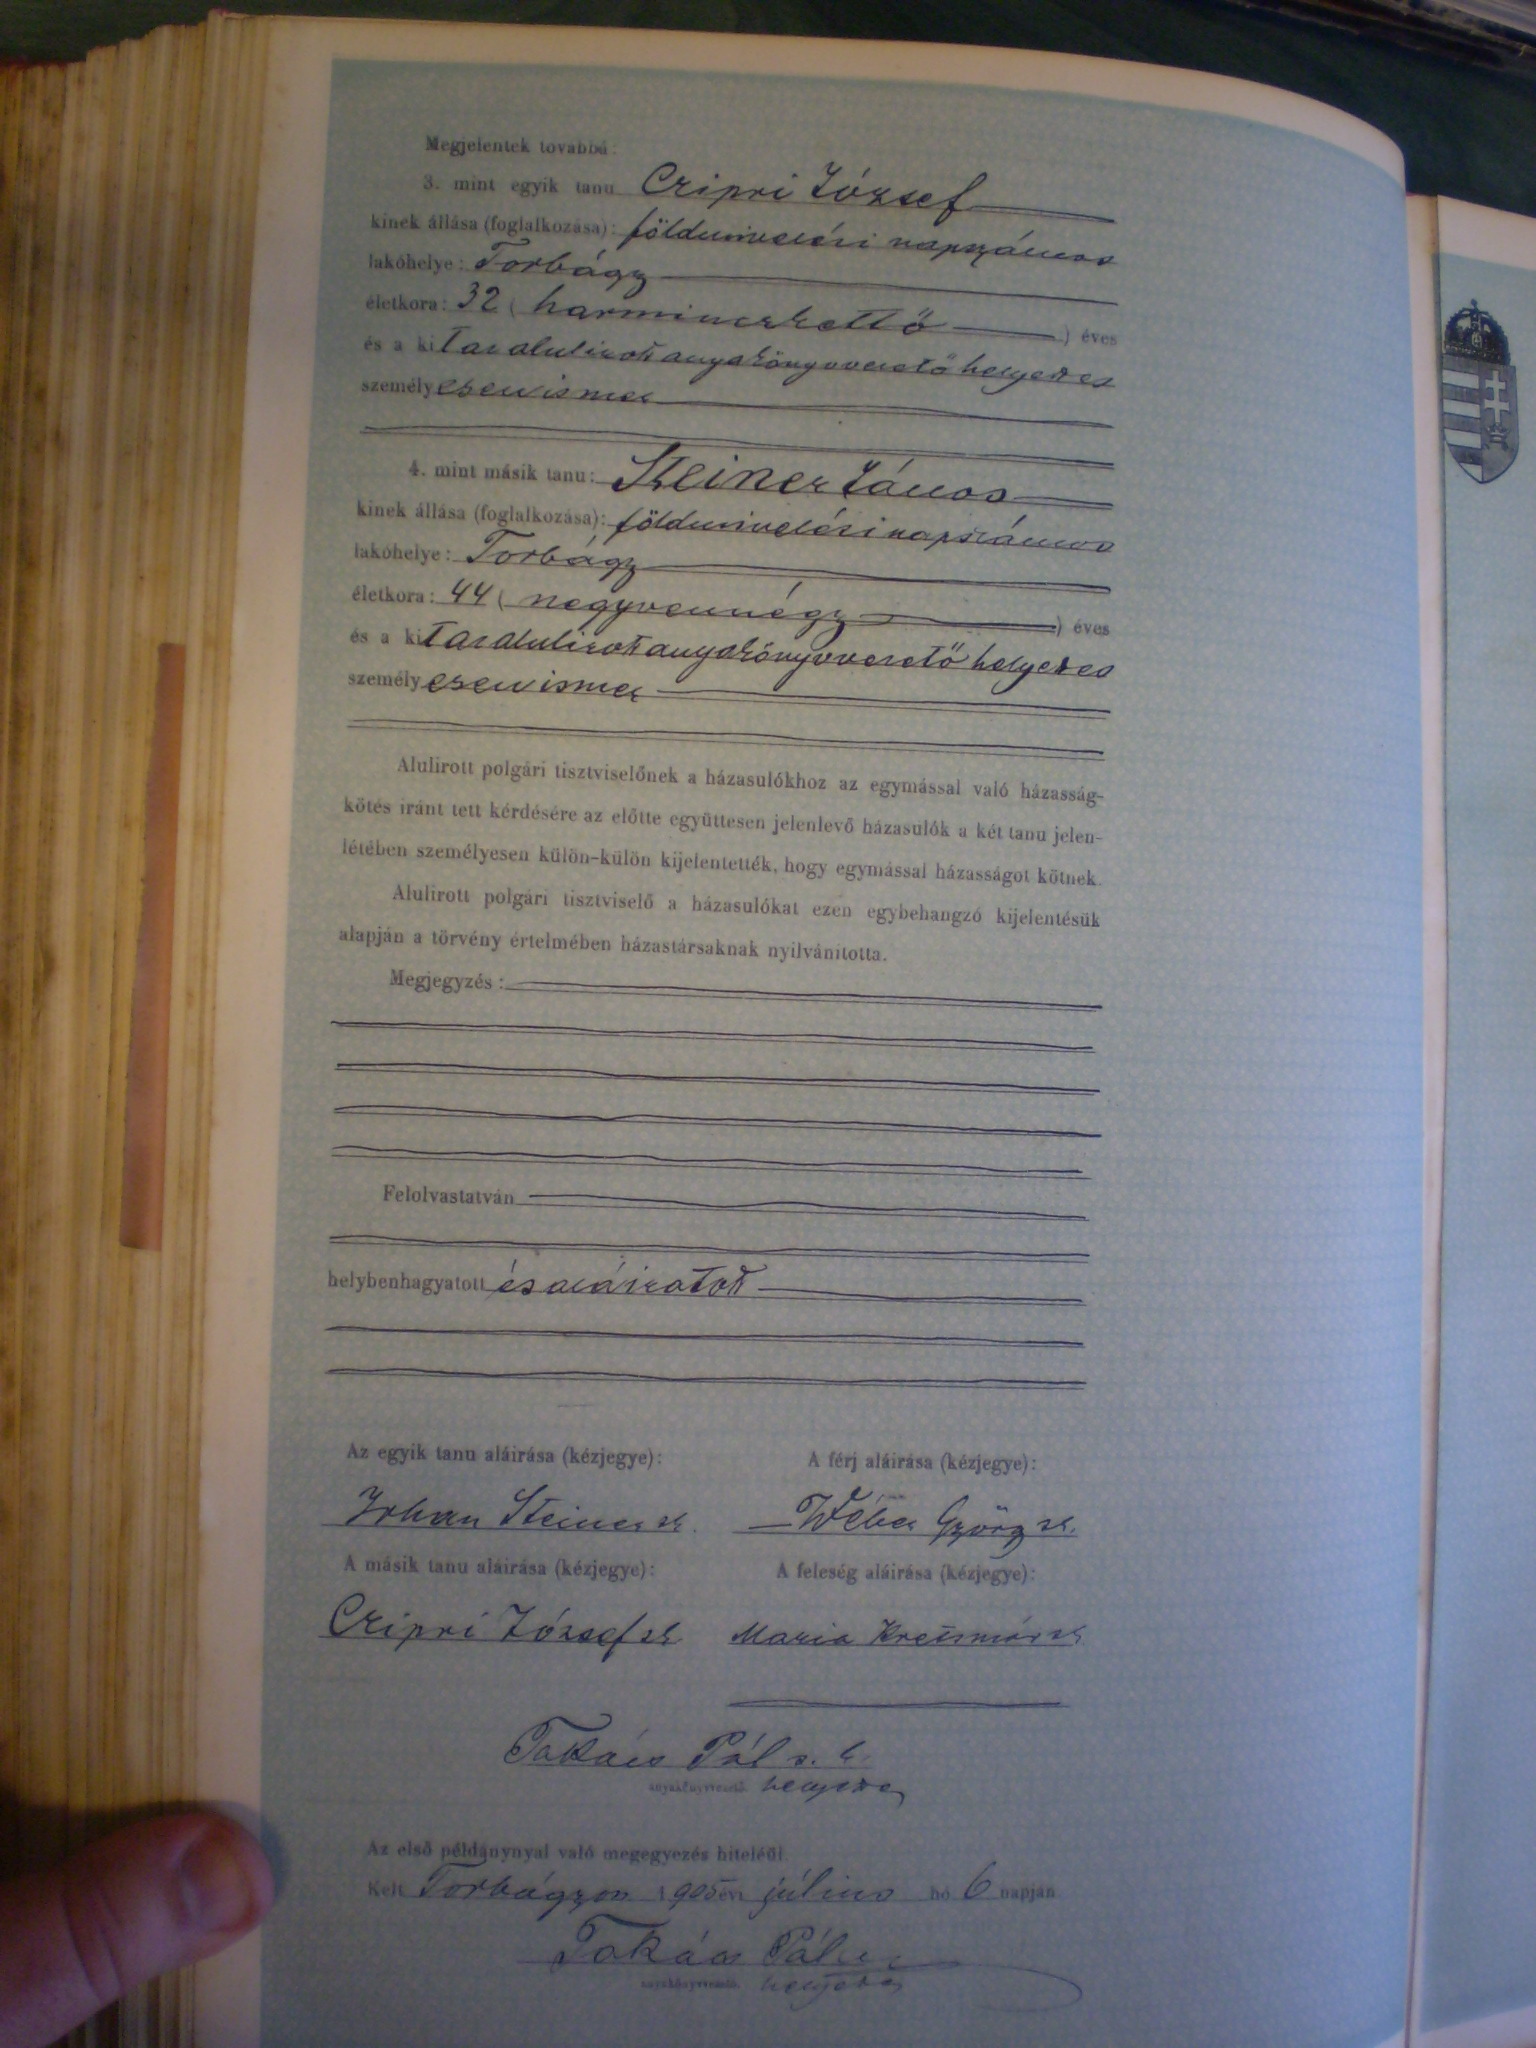 Megjelentek továbbá
3. mint egyik tanu Czipri József
kinek állása (foglalkozása): földmivelési napszámos
lakóhelye: Torbágy
életkora: 32 (harminczkettő) éves
és a kit az alulirott anyakönyvvezető helyettes
személyesen ismer
4. mint másik tanu: Steiner János
kinek állása (foglalkozása): földmivelési napszámos
lakóhelye: Torbágy
életkora: 44 (negyvennégy) éves
és a kit az alulirott anyakönyvvezető helyettes
személyesen ismer
Alulirott polgári tisztviselőnek a házasulókhoz az egymással való házasság-
kötés iránt tett kérdésére az előtte együttesen jelenlevő házasulók a két tanu jelen-
létében személyesen külön-külön kijelentették, hogy egymással házasságot kötnek.
Alulirott polgári tisztviselő a házasulókat ezen egybehangzó kijelentésük
alapján a törvény értelmében házastársaknak nyilvánitotta.
Megjegyzés:
Felolvastatván
helybenhagyatott és aláiratott
Az egyik tanu aláirása (kézjegye): A férj aláirása (kézjegye):
Johan Steiner sk. Wéber György sk.
A másik tanu aláirása (kézjegye): A feleség aláirása (kézjegye):
Czipri József sk Maria Kretsmár sk
Takács Pál s. k.
anyakönyvvezető helyettes
Az első példánynyal való megegyezés hiteléül.
Kelt Torbágyon 1905 évi július hó 6 napján
Takács Pál
anyakönyvvezető helyettes